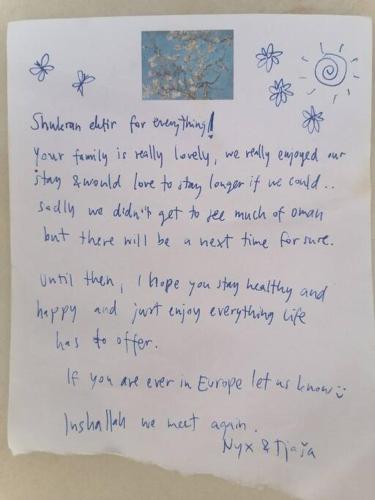 Shukran ektir for everything!
Your family is really lovely, we really enjoyed our
stay & would love to stay longer if we could..
sadly we didn't get to see much of oman
but there will be a next time for sure.
Until then, I hope you stay healthy and
happy and just enjoy everything life
has to offer.
If you are ever in Europe let us know
Inshallah we meet again.
Nyx & Tjaša